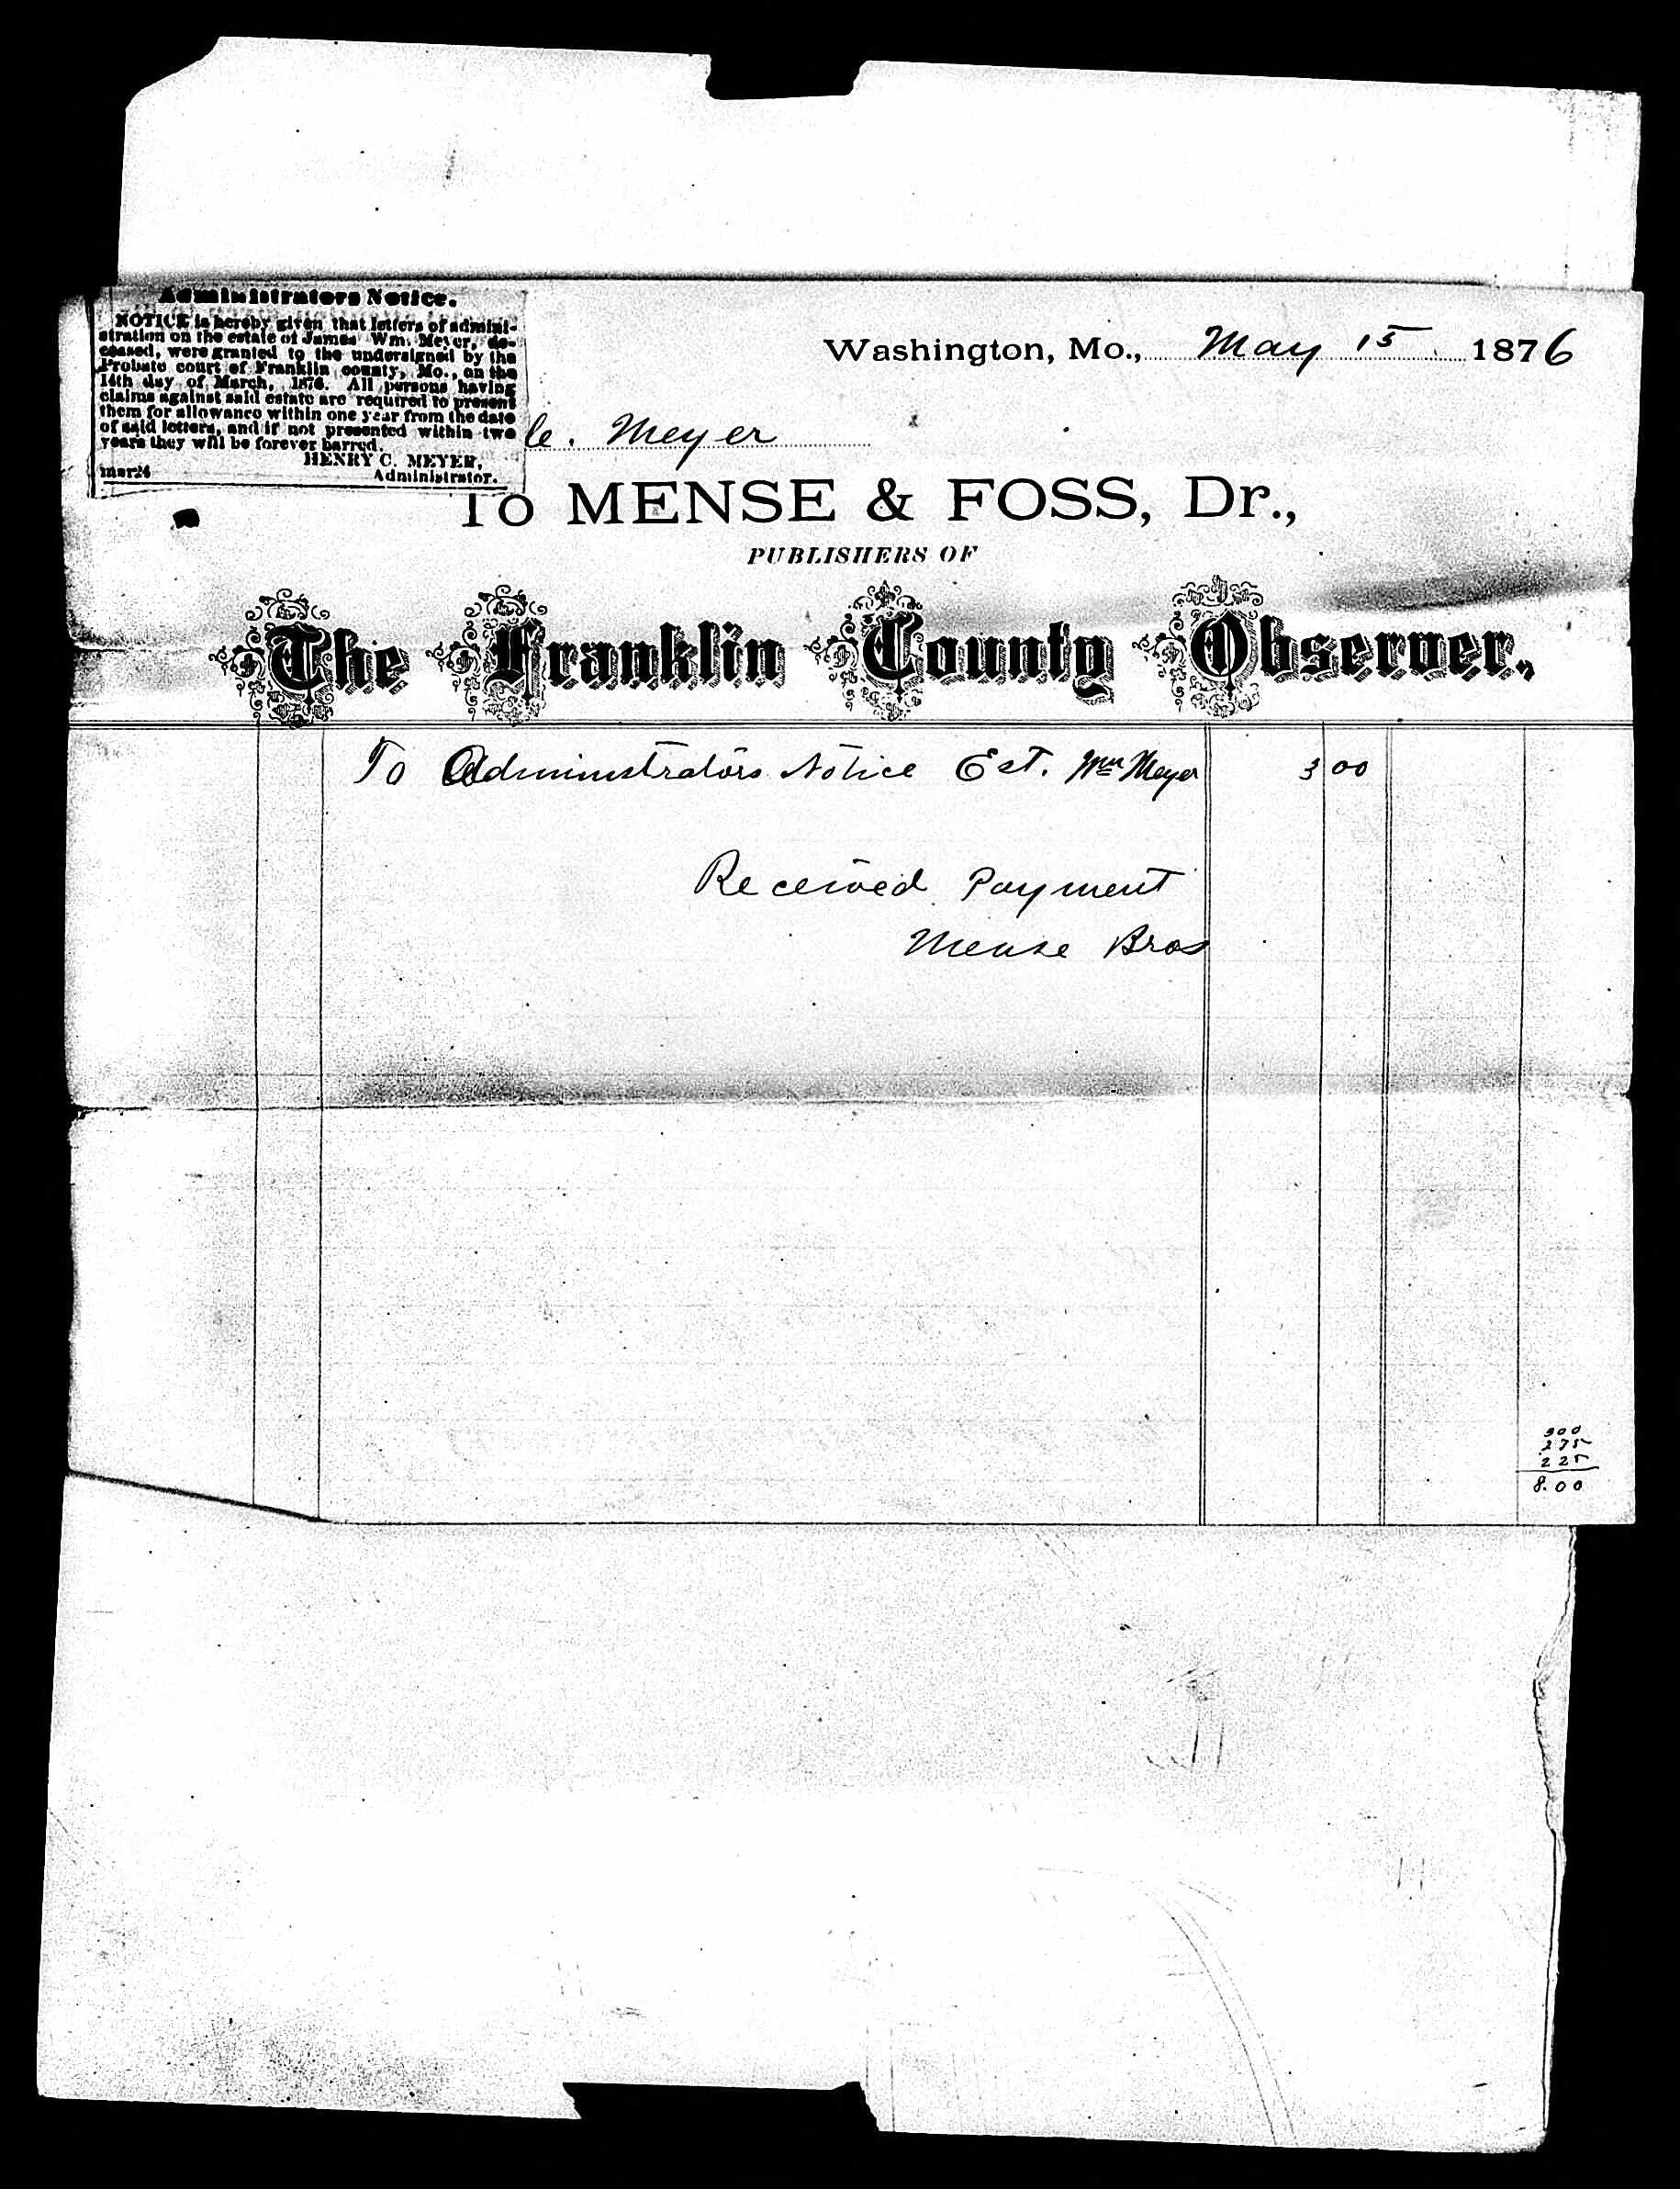 Administrators Notice.
NOTICE is hereby given that letters of admini-
stration on the estate of James Wm. Meyer, de-
ceased, were granted to the undersigned by the
Probate court of Franklin county, Mo., on the
14th day of March, 1876. All persons having
claims against said estate are required to present
them for allowance within one year from the date
of said letters, and if not presented within two
years they will be forever barred.
HENRY C. MEYER,
mar24 Administrator.
Washington, Mo., May 15 1876
C. Meyer
To MENSE & FOSS, Dr.,
PUBLISHERS OF
The Franklin County Observer,
To Administrators Notice Est. Wm Meyer 3 00
Received Payment
Mense Bros
300
275
225
8.00